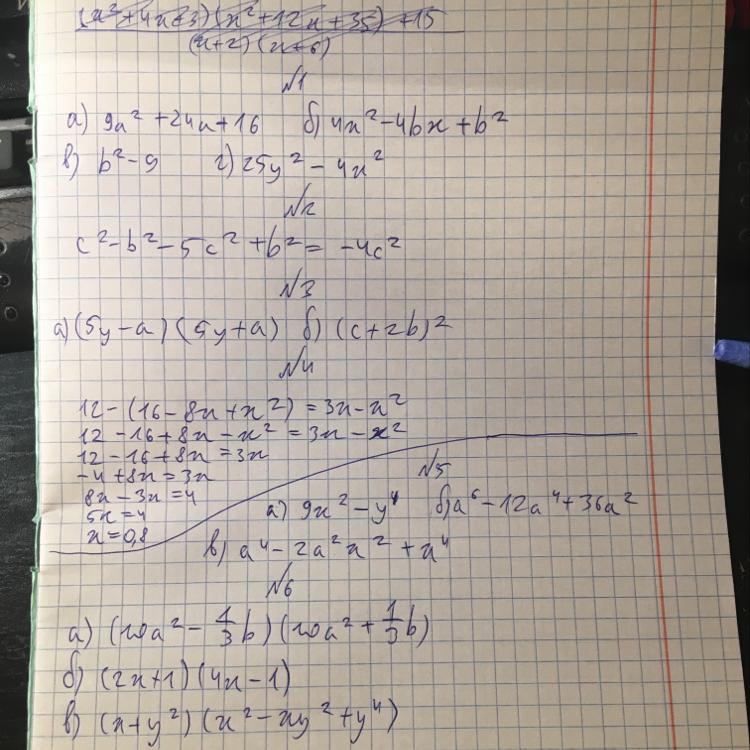 (x²+4x+3)(x²+12x+35)+15
(x+2)(x+6)
№1
а) 9a²+24a+16 б) 4x²-4bx+b²
в) b²-9 г) 25y²-4x²
№2
c²-b²-5c²+b²=-4c²
№3
а) (5y-a)(5y+a) б) (c+2b)²
№4
12-(16-8x+x²)=3x-x²
12-16+8x-x²=3x-x²
12-16+8x=3x
-4+8x=3x
8x-3x=4
5x=4
x=0,8
№5
а) 9x²-y⁴ б) a⁶-12a⁴+36a²
в) a⁴-2a²x²+x⁴
№6
а) (20a²-1/3b)(20a²+1/3b)
б) (2x+1)(4x-1)
в) (x+y²)(x²-xy²+y⁴)